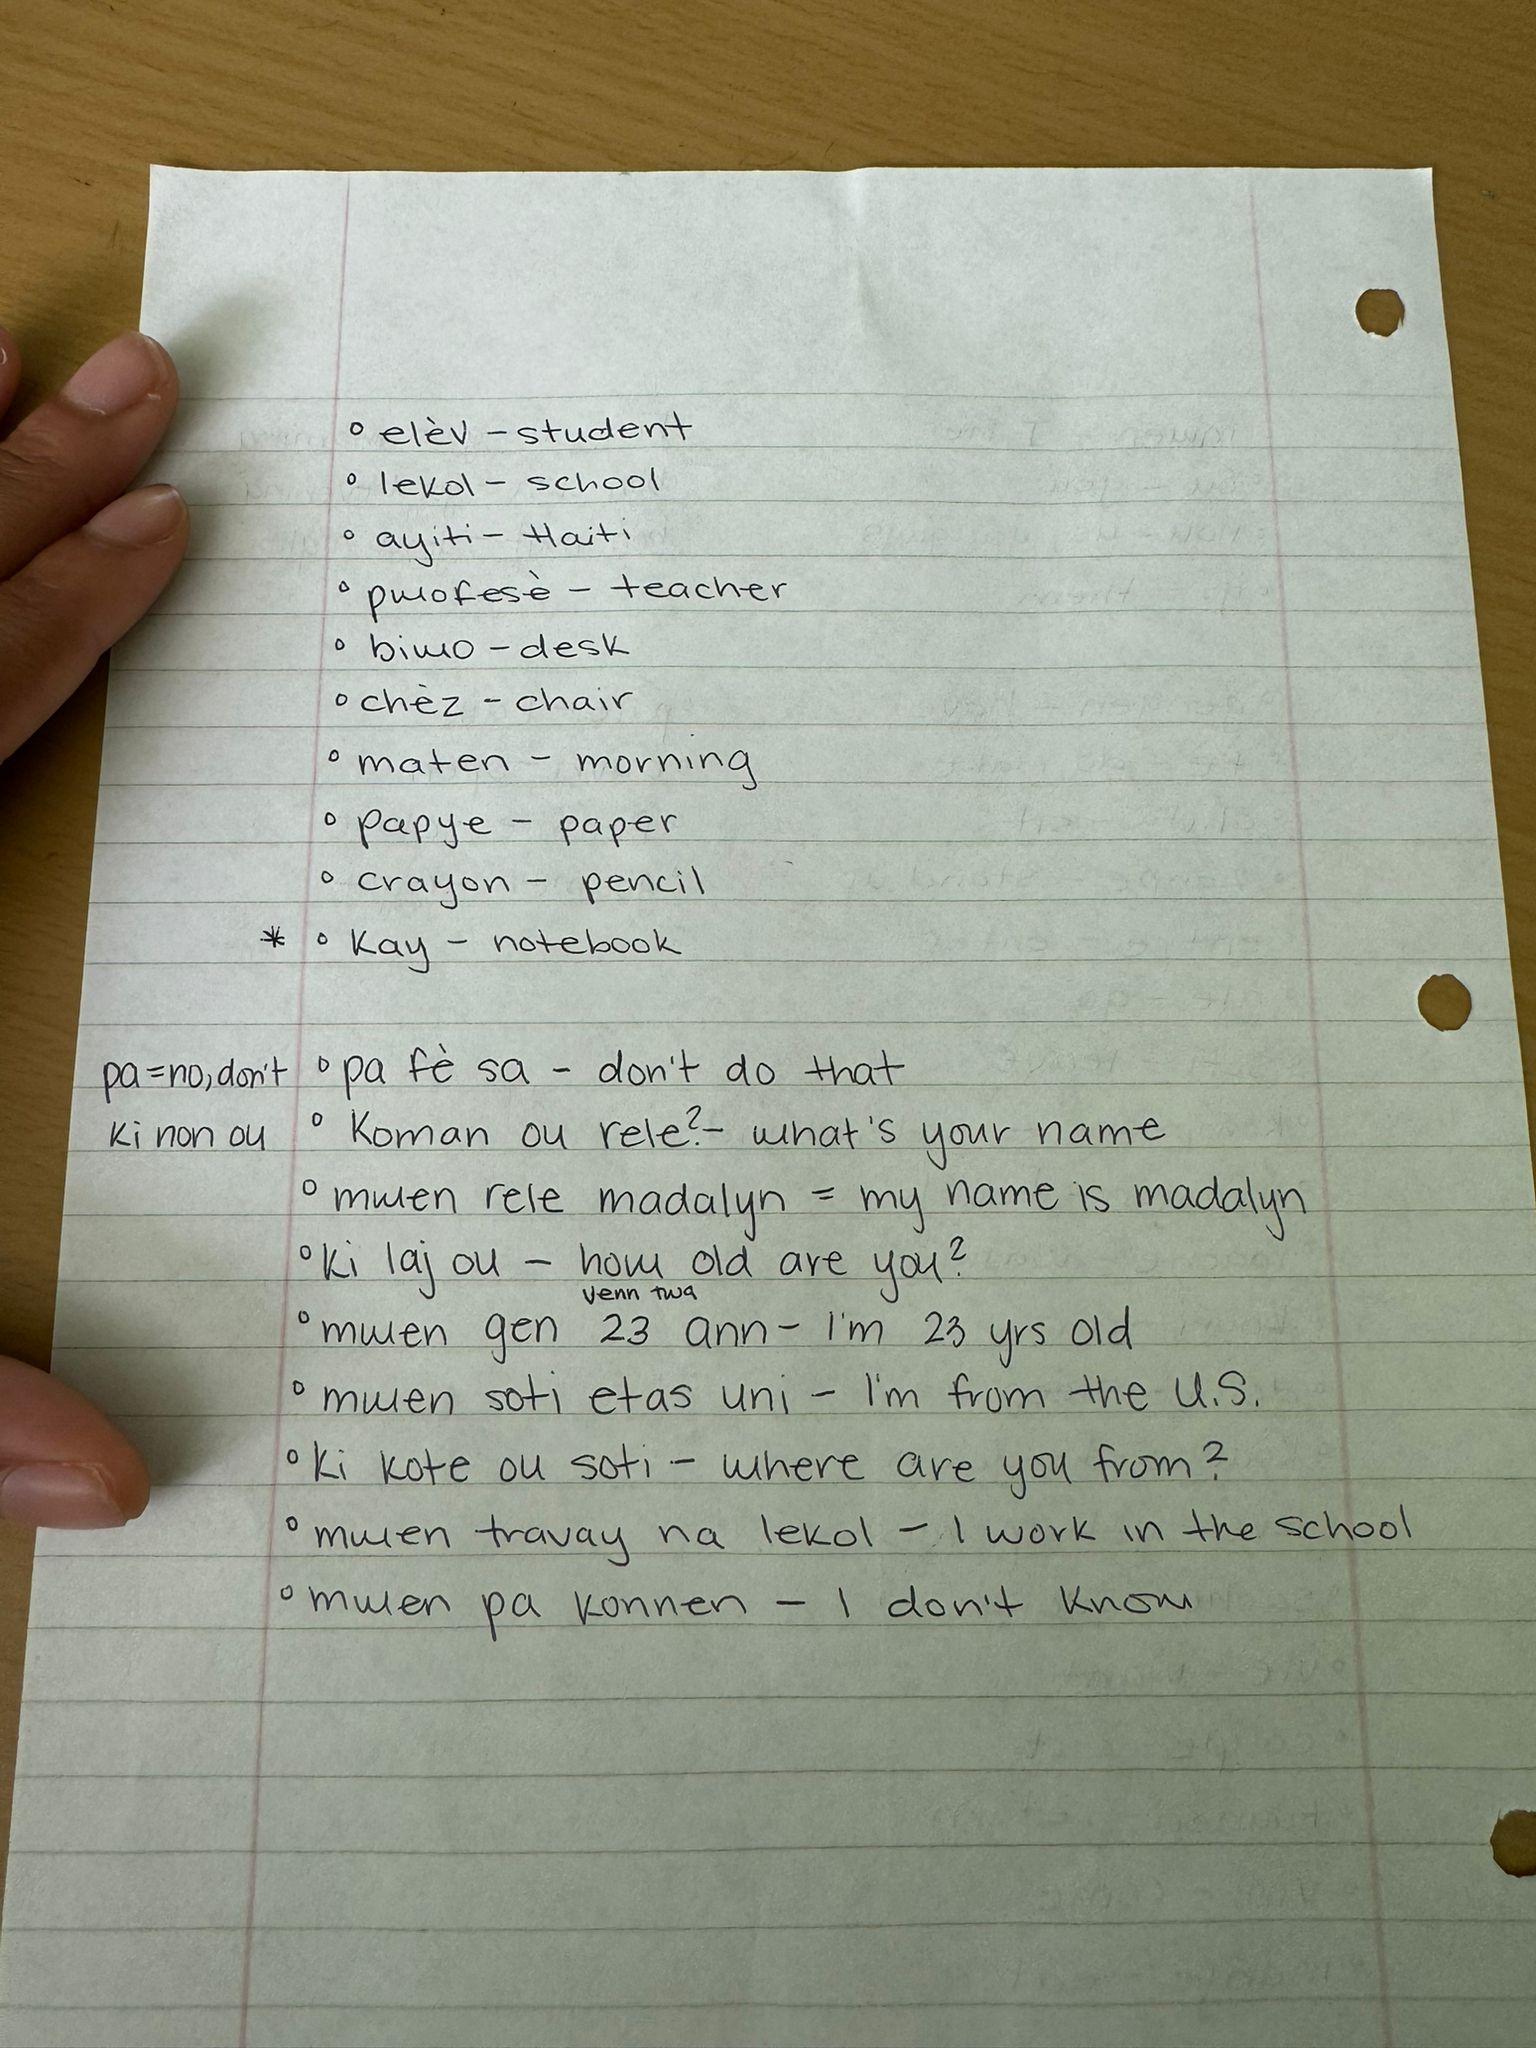 ° elèv - student
° lekol - school
° ayiti - Haiti
° pwofesè - teacher
° biwo - desk
° chèz - chair
° maten - morning
° papye - paper
° crayon - pencil
* ° kay - notebook
pa = no, don't ° pa fè sa - don't do that
ki non ou ° koman ou rele? - what's your name
° mwen rele madalyn = my name is madalyn
° ki laj ou - how old are you?
venn twa
° mwen gen 23 ann - I'm 23 yrs old
° mwen soti etas uni - I'm from the U.S.
° ki kote ou soti - where are you from?
° mwen travay na lekol - I work in the school
° mwen pa konnen - I don't know